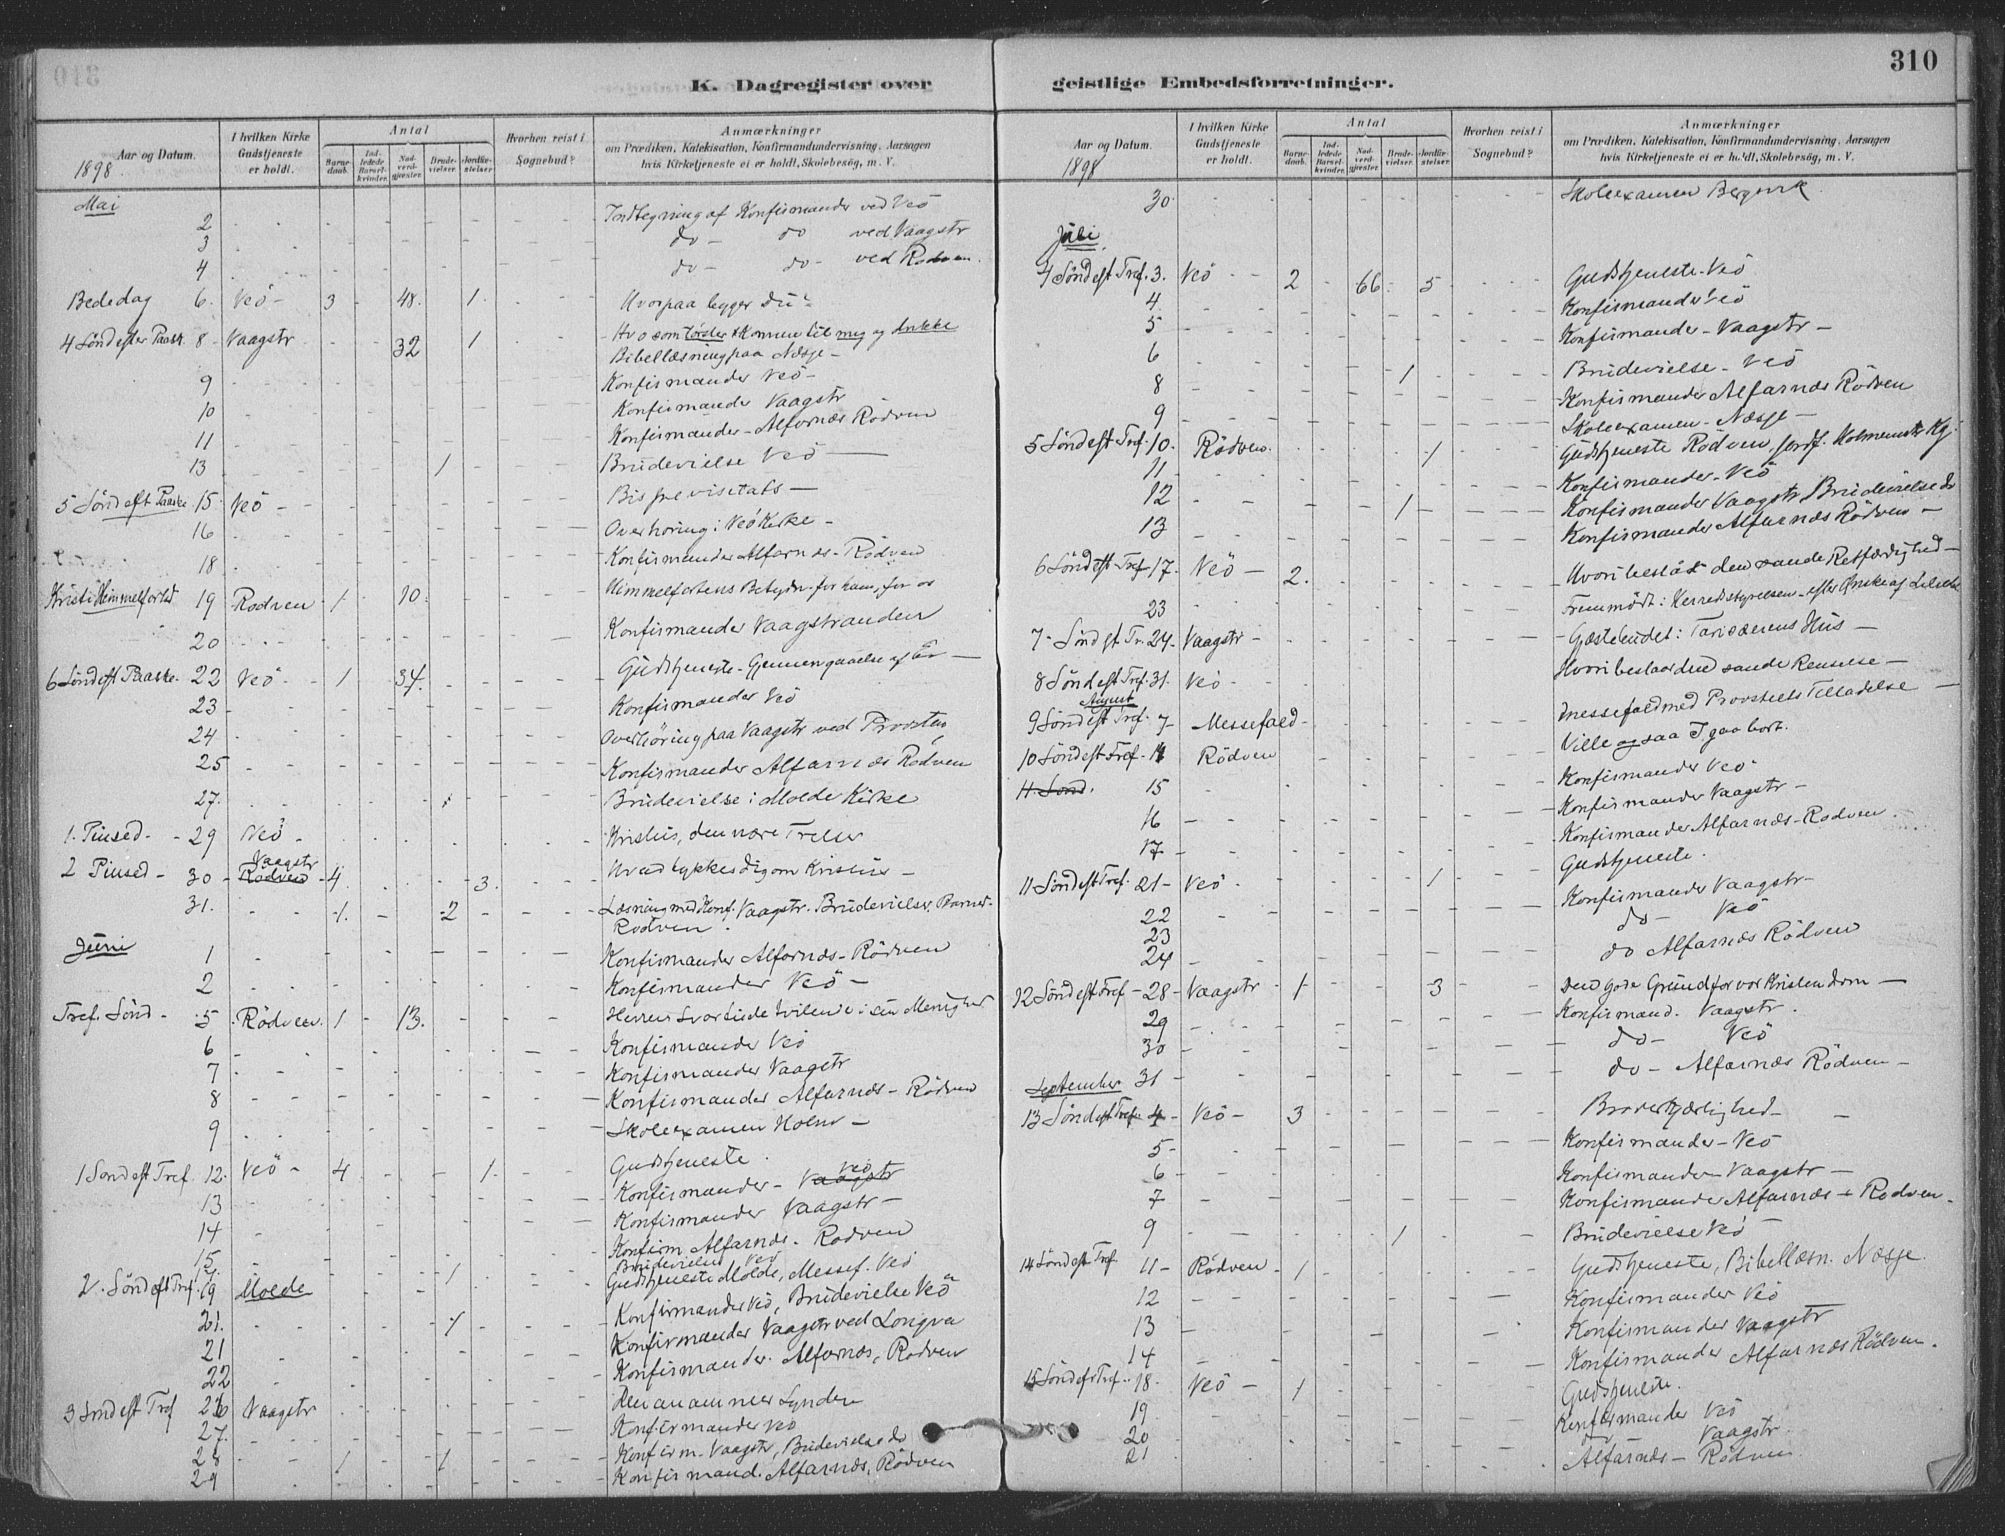 310
K. Dagregister over
Aar og Datum. I hvilken Kirke Gudstjeneste er holdt. Antal Barnedaab. Indledede Barselkvinder. Nadverdgjester. Brudevielser. Jordfæstelser. Hvorhen reist i Sognebud? Anmærkninger om Prædiken, Katekisation, Konfirmandundervisning, Aarsagen hvis Kirketjeneste ei er holdt, Skolebesøg, m. V.
1898.
Mai
2 Indtegning af Konfirmander ved Veö
3 do - do ved Vaagstr
4 do - do - ved Rödven.
Bededag 6. Veö - 3 48. 1. Hvorpaa bygger Du?
4 Sönd efter Paask. 8 - Vaagstr. 32 1 Hvo som törster komme til mig og drikke
Bibellæsning paa Næsje -
9 Konfirmander Veö -
10 Konfirmander Vaagstr
11 Konfirmander - Alfarnæs Rödven
13 1 Brudevielse Veö
5 Sönd eft Paaske 15 - Veö - Bispevisitats -
16 Overhöring i Veö Kirke -
18 Konfirmander Alfarnæs - Rödven
Kristi Himmelfartsd 19 Rödven 1 10. Himmelfartens Betydn. for ham, for os
20 Konfirmander Vaagstranden
6 Sönd eft Paaske. 22 Veö 1 34. Gudstjeneste - Gjennemgaaelse af
23 Konfirmander Veö
24 Overhöring paa Vaagstr ved Provsten
25 Konfirmander Alfarnæs Rödven
27. 1 Brudevielse i Molde Kirke
1. Pinsed. - 29 Veö - Kristus, den
2 Pinsed - 30 - Vaagstr Rödven - 4 3. Hvad tykkes dig om Kristus -
31. 1. 2 Læsning med Konf. Vaagstr. Brudevielser, Barned.
Rödven.
Juni 1 Konfirmander Alfarnæs - Rödven
2 Konfirmander Veö -
Tref. Sönd - 5 Rödven. 1 13. Herren i sin Menighed
6 Konfirmander Veö
7 Konfirmander Vaagstr
8 Konfirmander Alfarnæs - Rödven
9 Skoleexamen Holm -
1 Sönd eft Tref. 12. Veö - 4 1. Gudstjeneste.
13 Konfirmander - Vaagstr Veö
14 Konfirmander Vaagstr -
15. Konfirm. Alfarnæs. Rödven
1 Brudevielse Veö
2. Sönd eft Tref. 19 Molde Gudstjeneste Molde, Messef. Veö
21. 1 Konfirmander Veö, Brudevielse Veö
21 Konfirmander Vaagstr ved Longva
22 Konfirmander. Alfarnæs, Rödven
3 Sönd eft Tref 26 Vaagstr Den anammer Syndere
27. Konfirmander Veö
28 1 1 Konfirm. Vaagstr, Brudevielse do
29 Konfirmand. Alfarnæs, Rödven
geistlige Embedsforretninger.
Aar og Datum. I hvilken Kirke Gudstjeneste er holdt. Antal Barnedaab. Indledede Barselkvinder. Nadverdgjester. Brudevielser. Jordfæstelser. Hvorhen reist i Sognebud? Anmærkninger om Prædiken, Katekisation, Konfirmandundervisning, Aarsagen hvis Kirketjeneste ei er holdt, Skolebesøg, m. V.
1898
30. Skoleexamen
Juli
4 Sönd eft Tref. 3. Veö 2 66 5 Gudstjeneste - Veö
4. Konfirmander Veö
5 Konfirmander - Vaagstr -
6 1 Brudevielse - Veö
8 Konfirmander Alfarnæs Rödven
9 Skoleexamen - Næsje -
5 Sönd eft Tref. 10. Rödven. 1 Gudstjeneste Rödven,
11 Konfirmander - Veö
12 1 Konfirmander Vaagstr Brudevielse do
13 Konfirmander Alfarnæs Rödven -
6 Sönd eft Tref 17. Veö - 2. Hvori bestaar den sande Retfærdighed -
23 Fremmödt i Herredsstyrelsen - efter Önske af
7 - Sönd eft Tr. 24. Vaagstr - Gæstebudet i Farisæerens Hus -
8 Sönd eft Tref. 31. Veö Hvori bestaar den sande Renselse -
August
9 Sönd eft Tref. 7 - Messefald - Messefald med Provstiets Tilladelse
10 Sönd eft Tref. 14 Rödven Ville ogsaa I gaa bort.
11. Sönd. 15 Konfirmander Veö.
16 Konfirmander Vaagstr -
17 - Konfirmander Alfarnæs - Rödven.
11 Sönd eft Tref. 21 - Veö 1 Gudstjeneste.
22 Konfirmander Vaagstr -
23 do - Veö
24 do Alfarnæs Rödven
12 Sönd eft Tref - 28 - Vaagstr 1 3 Den gode Grund for vor Kristendom -
29 Konfirmand. Vaagstr.
30 do - Veö
31 do - Alfarnæs Rödven -
September
13 Sönd eft Tref. 4 - Veö - 3 Broderkjærlighed
5 - Konfirmander - Veö
6 Konfirmander Vaagstr -
7 Konfirmander Alfarnæs - Rödven.
9 1 Brudevielse Veö
14 Sönd eft Tref. 11 - Rödven 1 Gudstjeneste, Bibellæsn. Næsje
12 Konfirmander Veö
13 Konfirmander Vaagstr
14 Konfirmander Alfarnæs Rödven.
15 Sönd eft Tref. 18. Veö - 1 Gudstjeneste.
19 Konfirmander Veö
20 Vaagstr
21 Alfarnæs - Rödven